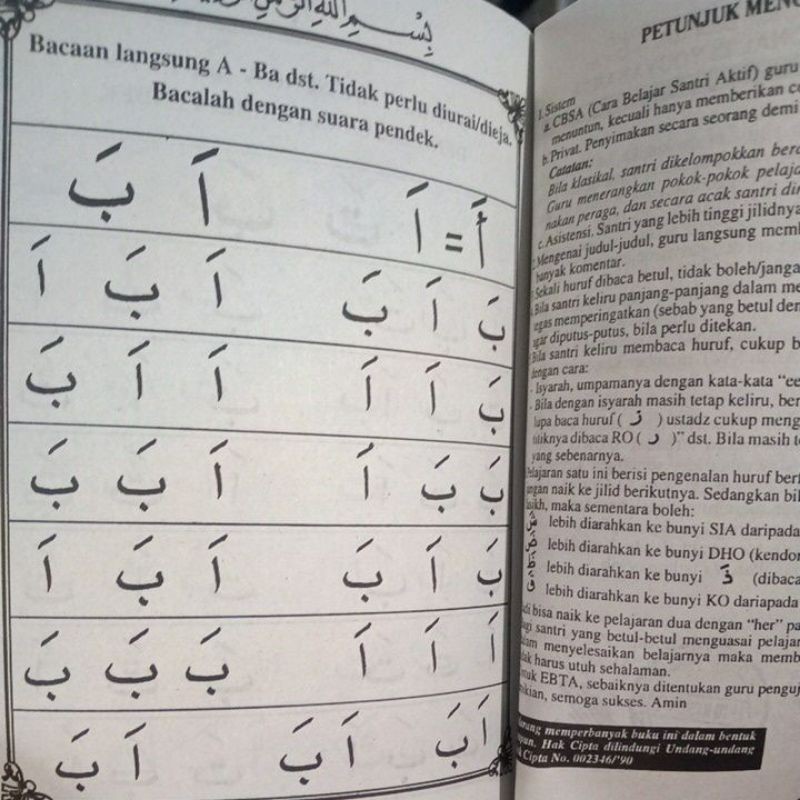 بِسْمِ اللهِ الرَّحْمٰنِ
Bacaan langsung A - Ba dst. Tidak perlu diurai/dieja.
Bacalah dengan suara pendek.
أَ = اَ اَ بَ
بَ اَ بَ اَ بَ اَ
بَ اَ اَ اَ اَ بَ
بَ بَ اَ اَ بَ بَ
بَ اَ بَ اَ بَ اَ
اَ اَ اَ بَ بَ بَ
اَ بَ اَ بَ اَ بَ
PETUNJUK
1. Sistem
a. CBSA (Cara Belajar Santri Aktif) guru
menuntun, kecuali hanya memberikan
b. Privat. Penyimakan secara seorang demi
Catatan:
Bila klasikal, santri dikelompokkan
Guru menerangkan pokok-pokok
nakan peraga, dan secara acak santri
c. Asistensi. Santri yang lebih tinggi jilidnya
Mengenai judul-judul, guru langsung
banyak komentar.
Sekali huruf dibaca betul, tidak boleh/jangan
Bila santri keliru panjang-panjang dalam
tegas memperingatkan (sebab yang betul
agar diputus-putus, bila perlu ditekan.
Bila santri keliru membaca huruf, cukup
dengan cara:
- Isyarah, umpamanya dengan kata-kata “
- Bila dengan isyarah masih tetap keliru,
lupa baca huruf ( زَ ) ustadz cukup
titiknya dibaca RO ( رَ )” dst. Bila masih
yang sebenarnya.
Pelajaran satu ini berisi pengenalan huruf
naik ke jilid berikutnya. Sedangkan
maka sementara boleh:
lebih diarahkan ke bunyi SIA daripada
lebih diarahkan ke bunyi DHO
lebih diarahkan ke bunyi (dibaca
lebih diarahkan ke bunyi KO dariapada
bisa naik ke pelajaran dua dengan “her”
santri yang betul-betul menguasai
menyelesaikan belajarnya maka
harus utuh sehalaman.
EBTA, sebaiknya ditentukan guru
semoga sukses. Amin
memperbanyak buku ini dalam bentuk
Hak Cipta dilindungi Undang-undang
Cipta No. 002346/'90